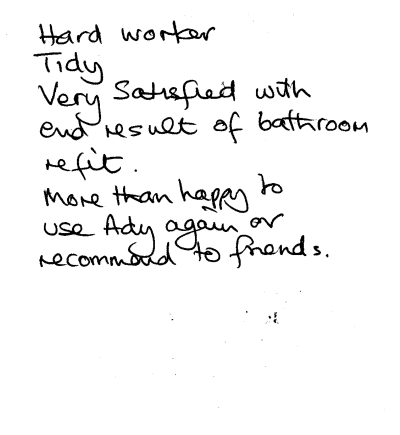 Hard worker
Tidy
Very Satisfied with
end result of bathroom
refit.
More than happy to
use Ady again or
recommend to friends.